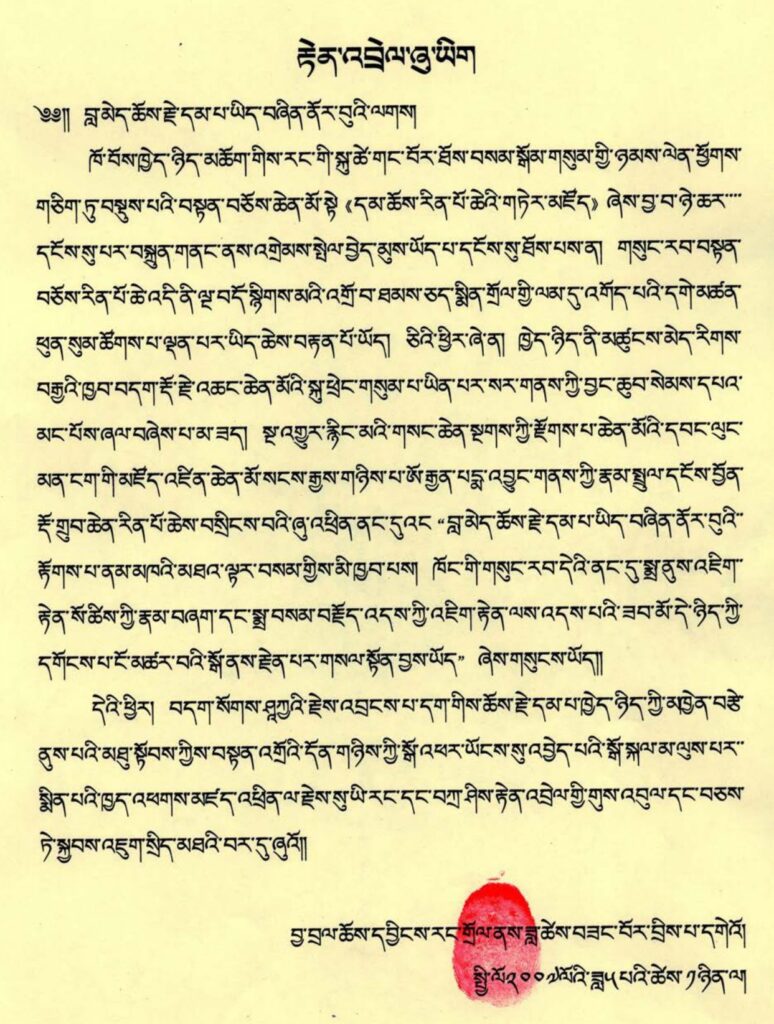 རྟེན་འབྲེལ་ཞུ་ཡིག
༄༅།། བླ་མེད་ཆོས་རྗེ་དམ་པ་ཡིད་བཞིན་ནོར་བུའི་ལགས།
ཁོ་བོས་ཁྱེད་ཉིད་མཆོག་གིས་རང་གི་སྐུ་ཚེ་གང་བོར་ཐོས་བསམ་སྒོམ་གསུམ་གྱི་ཉམས་ལེན་ཕྱོགས་
གཅིག་ཏུ་བསྡུས་པའི་བསྟན་བཅོས་ཆེན་མོ་སྟེ《དམ་ཆོས་རིན་པོ་ཆེའི་གཏེར་མཛོད》ཞེས་བྱ་བ་ཉེ་ཆར་་་་
དངོས་སུ་པར་བསྐྲུན་གནང་ནས་འགྲེམས་སྤེལ་བྱེད་མུས་ཡོད་པ་དངོས་སུ་ཐོས་པས་ན། གསུང་རབ་བསྟན་
བཅོས་རིན་པོ་ཆེ་འདི་ནི་ལྔ་བདོ་སྙིགས་མའི་འགྲོ་བ་ཐམས་ཅད་སྨིན་གྲོལ་གྱི་ལམ་དུ་འགོད་པའི་དགེ་མཚན་
ཕུན་སུམ་ཚོགས་པ་ལྡན་པར་ཡིད་ཆེས་བརྟན་པོ་ཡོད། ཅིའི་ཕྱིར་ཞེ་ན། ཁྱེད་ཉིད་ནི་མཚུངས་མེད་རིགས་
བརྒྱའི་ཁྱབ་བདག་རྡོ་རྗེ་འཆང་ཆེན་མོའི་སྐུ་ཕྲེང་གསུམ་པ་ཡིན་པར་སར་གནས་ཀྱི་བྱང་ཆུབ་སེམས་དཔའ་
མང་པོས་ཞལ་བཞེས་པ་མ་ཟད། སྔ་འགྱུར་རྙིང་མའི་གསང་ཆེན་སྔགས་ཀྱི་རྫོགས་པ་ཆེན་མོའི་དབང་ལུང་
མན་ངག་གི་མཛོད་འཛིན་ཆེན་མོ་སངས་རྒྱས་གཉིས་པ་ཨོ་རྒྱན་པདྨ་འབྱུང་གནས་ཀྱི་རྣམ་སྤྲུལ་དངོས་བྱོན་
རྡོ་གྲུབ་ཆེན་རིན་པོ་ཆེས་བསྲིངས་བའི་ཞུ་འཕྲིན་ནང་དུའང “བླ་མེད་ཆོས་རྗེ་དམ་པ་ཡིད་བཞིན་ནོར་བུའི་་
རྟོགས་པ་ནམ་མཁའི་མཐའ་ལྟར་བསམ་གྱིས་མི་ཁྱབ་པས། ཁོང་གི་གསུང་རབ་དེའི་ནང་དུ་སྨྲ་ནུས་འཇིག་་
རྟེན་སོ་ཚིས་ཀྱི་རྣམ་བཞག་དང་སྨྲ་བསམ་བརྗོད་འདས་ཀྱི་འཇིག་རྟེན་ལས་འདས་པའི་ཟབ་མོ་དེ་ཉིད་ཀྱི་
དགོངས་པ་ངོ་མཚར་བའི་སྒོ་ནས་རྗེན་པར་གསལ་སྟོན་བྱས་ཡོད” ཞེས་གསུངས་ཡོད།།
དེའི་ཕྱིར། བདག་སོགས་ཤཱཀྱའི་རྗེས་འབྲངས་པ་དག་གིས་ཆོས་རྗེ་དམ་པ་ཁྱེད་ཉིད་ཀྱི་མཁྱེན་བརྩེ་
ནུས་པའི་མཐུ་སྟོབས་ཀྱིས་བསྟན་འགྲོའི་དོན་གཉིས་ཀྱི་སྒོ་འཕར་ཡོངས་སུ་འབྱེད་པའི་སྒོ་སྐལ་མ་ལུས་པར་་
སྨིན་པའི་ཁྱད་འཕགས་མཛད་འཕྲིན་ལ་རྗེས་སུ་ཡི་རང་དང་བཀྲ་ཤིས་རྟེན་འབྲེལ་གྱི་གུས་འབུལ་དང་བཅས་
ཏེ་སྐྱབས་འཇུག་སྲིད་མཐའི་བར་དུ་ཞུའོ།།
བྱ་བྲལ་ཆོས་དབྱིངས་རང་གྲོལ་ནས་ཟླ་ཚེས་བཟང་བོར་བྲིས་པ་དགེའོ།
སྤྱི་ལོ༢༠༠༧ལོའི་ཟླ༥པའི་ཚེས་༡ཉིན་ལ།